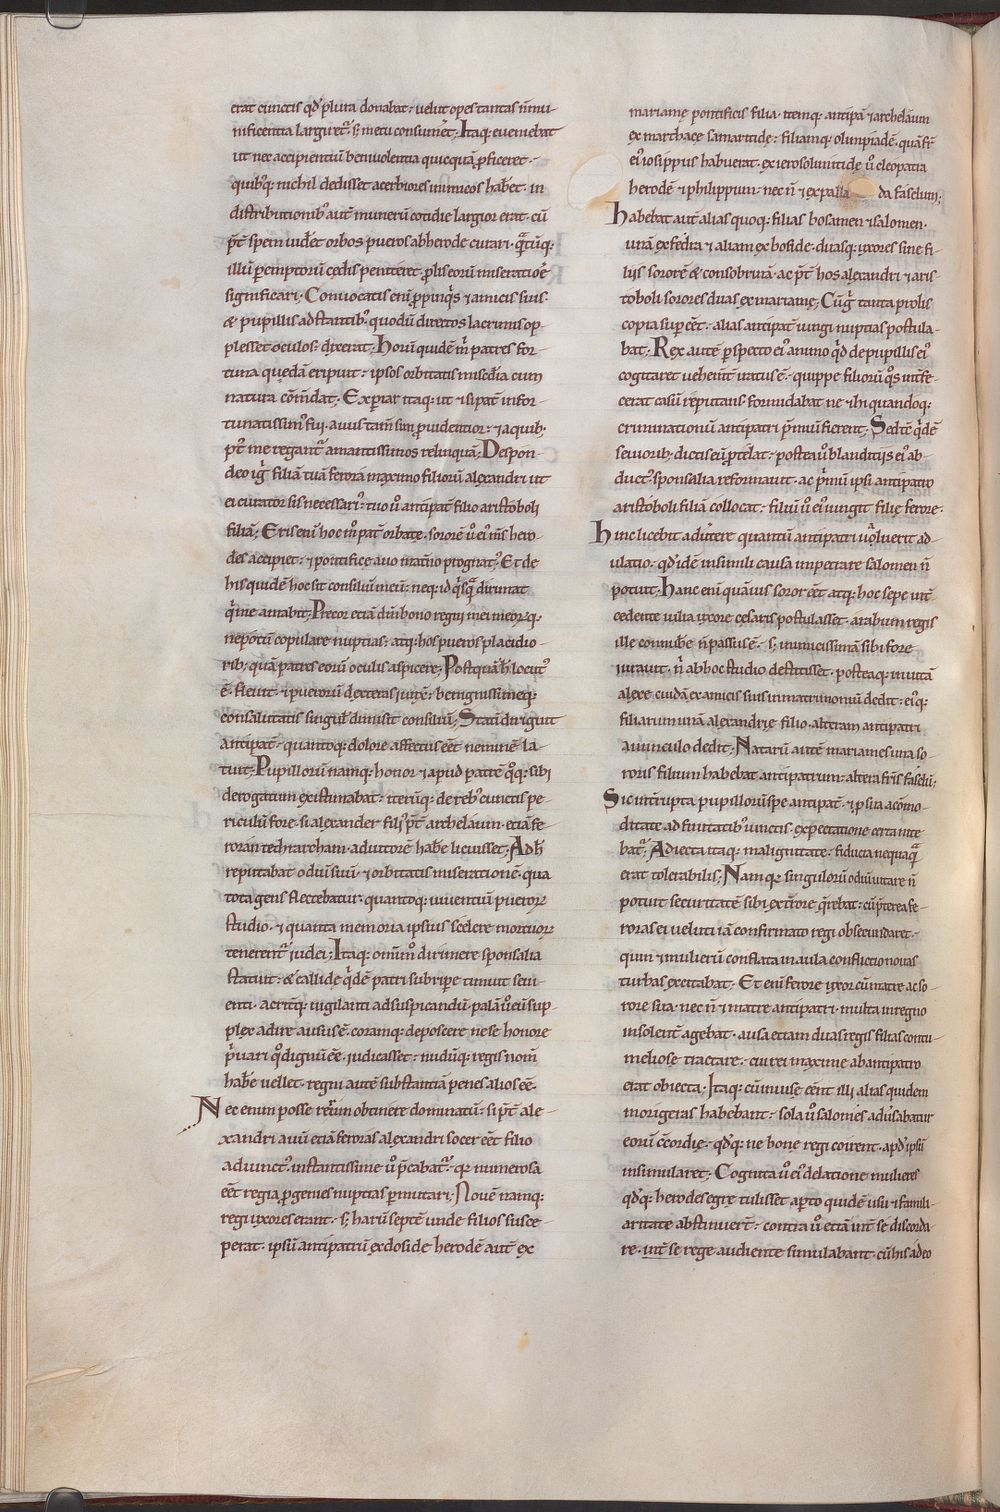 erat cunctis qd' plura donabat· uelut opes tantas n̄ mu-
nificentia largiret᷑· s; metu consumēt; Itaq; eueniebat
ut nec accipientiū beniuolentia quicquā p̱ficeret·
quibꝰq; nichil dedisset acerbiores inimicos hab&et· in
distributionibꝰ aut̄ munerū cotidie largior erat· cū
p̄t̄ spem uideret orbos pueros ab herode curari·
illū p̱emptorū cędis penitere· p̱ illis eorū miseratiōe
significari; Conuocatis enī p̱pinq'̇s ⁊ amicis suis·
& pupillis adstantibꝰ· quodū diu e os lacrimis op-
plesset oculos· dixerat; Horū quidē m̄ patres for-
tuna quędā eripuit· ipsos orbitatis misedia cum
natura cōmdat; Exp̱iar itaq; ut & si pat̄ infor-
tunatissimꝰ fui· auus tam̄ sim p̱uidentior· ⁊ a quib;
p̱t̄ me regant᷑ amantissimos relinquā; Despon-
deo ig̓ filiā tuā ferora maximo filiorū alexandri ut
ei curator sis necessariꝰ· tuo ů antipat̄ filio aristoboli
filiā; Eris enī hoc m̊ pat̄ orbatę· sororē ů eiꝰ m̄s hero-
des accipiet· ⁊ pontifice auo mat̄no prognat᷒; Et de
his quidē hoc sit consiliū meū· neq; id q̓sq̃ dirimat
q̓ me amabit; Precor etiā dm̄ bono regni mei meorq;
nepotū copulare nuptias· atq; hos pueros placidio-
rib; quā patres eorū oculis aspicere; Postquā h̄ locut᷒
ē· fleuit· ⁊ puerorū dexteras iunx̄· benignissimeq;
consalutatis singul' dimisit consiliū; Statī dirigiut
antipat̄· quantoq; dolore affectus eēt neminē la-
tuit; Pupillorū namq; honor ⁊ apud patrē q̊q; sibi
derogatum existimabat· iterūq; de rebꝰ cunctis pe-
riculū fore· si alexander filiꝰ p̄t̄ archelaum· etiā fe-
roran tedrarcham· adiutorē hab̄e licuisset; Ad h̄
reputabat odiū suū· ⁊ orbitatis miserationē· qua
tota gens flectebatur· quantoq; uiuentiū pueror̄
studio· ⁊ quanta memoria ipsius scelere mortuor̄
tenerent᷑ iudei; Itaq; omīm̊ dirimere sponsalia
statuit· & callide q̓dē patri subripe timuit seui-
enti· acrit̄q; uigilanti ad suspicandū· palā ů eū sup-
plex adire ausus ē· coramq; deposcere ne se honore
p̓uari q̊ dignū eē iudicasset· nudūq; regis nom̄
hab̄e uellet· regni autē substantiā penes alios eē·
Nec enim posse rerum obtinere dominatū· si p̄t̄ ale-
xandri auū etiā feroras alexandri socer eēt filio
adiunctꝰ· instantissime ů p̄cabat᷑· qr numerosa
eēt regia p̱genies nuptias p̱mutari; Nouē namq;
regi uxores erant· s; harū septē unde filios susce-
perat· ipsū antipatrū ex doside herodē aut̄ ex
mariamę pontificis filia· itemq; antipā ⁊ archelāum
ex marthace samaritide· filiamq; olimpiadē· quā fr̄
eiꝰ iosippus habuerat· ex ierosolimitide ů cleopatra
herodē ⁊ philippum· nec n̄ ⁊ ex palla da faselum;
Habebat aut̄ alias quoq; filias bosamen ⁊ salomen·
unā ex fedra ⁊ aliam ex bofide· duasq; uxores sine fi-
liis sororē & consobrinā· ac p̄t̄ hos alexandri ⁊ aris-
toboli sorores duas ex mariamę; Cūg̓ tanta prolis
copia sup eēt· alias antipat̄ iungi nuptias postula-
bat; Rex autē p̱specto eiꝰ animo q̓d de pupillis eiꝰ
cogitaret uehem̄t iratus ē· quippe filiorū q̊s int̄fe-
cerat casū reputans formidabat ne ⁊ hi quandoq;
criminationū antipatri p̄miū fierent; Sed tē q̓dē
seuiorib; dictis eū p̱telat· postea ů blanditiis eiꝰ ab-
ductꝰ sponsalia reformauit· ac p̓mū ipsi antipatro
aristoboli filiā collocat· filiū ů eiꝰ iungit filię ferore·
Hinc licebit aduertere quantū antipatri ualuerit ad-
ulatio· qd' idē in simili causa impetrare salomen n̄
potuit; Hanc enī quāuis soror eēt atq; hoc sepe int̄-
cedente iulia uxore cesaris postulasset· arabum regis
ille conub̄e n̄ passus ē· s; inimicissimā sibi fore
iurauit· n̄ ab hoc studio destitisset· posteaq; inuitā
alexe cuidā ex amicis suis in matrimoniū dedit· eiꝰq;
filiarum unā alexandrię filio· alteram antipatri
auunculo dedit; Natarū autē mariames una so-
roris filium habebat antipatrum· altera fr̄is faseli;
Sic int̄rupta pupillorū spe antipat̄· ⁊ p̱ sua acōmo-
ditate adfinitatibꝰ iunctis· expectatione certa nite
bat᷑; Adiecta itaq; malignitate· fiducia nequaq̃
erat tolerabilis; Nam qr singulorū odiū uitare n̄
potuit securitatē sibi ex t̄rore q̄rebat· cū p̱terea fe-
roras ei ueluti iā confirmato regi obsecundaret·
quin ⁊ mulierū conflata in aula conflictio nouas
turbas excitabat; Et enī ferore uxor cū matre ac so-
rore sua· nec n̄ ⁊ matre antipatri· multa in regno
insolent̄ agebat· ausa etiam duas regis filias contu-
meliose tractare· cui rei maxime ab antipatro
erat obiecta; Itaq; cū inuise eēnt illi alias quidem
morigeras habebant· sola ů salomes aduersabatur
eorū ccordie· qd'q; ne bone regi coirent· apd' ipsū
insimularet; Cognita ů eiꝰ delatione mulieres
qd'q; herodes egre tulisset· ap̱to quidē usu ⁊ famili-
aritate abstinuert̄· contra ů etiā int̄ se discorda
re· int̄ se rege audiente simulabant· cū his adeo